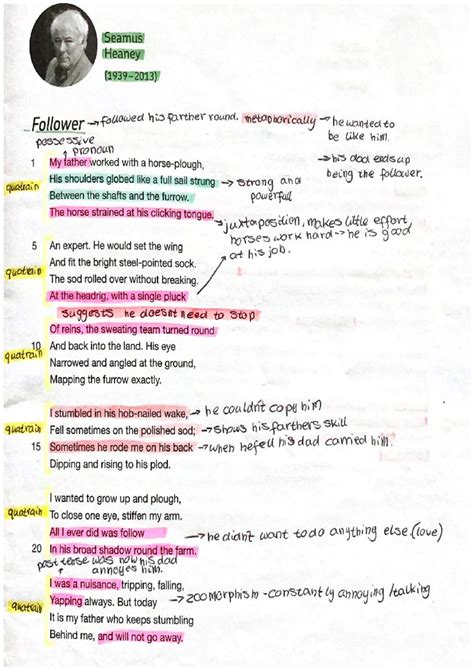 Seamus
Heaney
(1939–2013)
Follower → followed his farther round. metaphorically → he wanted to
be like him.
possessive
pronoun
→ his dad ends up
being the follower.
1 My father worked with a horse-plough,
His shoulders globed like a full sail strung → strong and
powerful
quatrain
Between the shafts and the furrow.
The horse strained at his clicking tongue.
→ juxtaposition, makes little effort,
horses work hard → he is good
at his job.
5 An expert. He would set the wing
And fit the bright steel-pointed sock.
quatrain
The sod rolled over without breaking.
At the headrig, with a single pluck
suggests he doesnt need to stop
Of reins, the sweating team turned round
quatrain
10 And back into the land. His eye
Narrowed and angled at the ground,
Mapping the furrow exactly.
I stumbled in his hob-nailed wake, → he couldn't copy him
quatrain
Fell sometimes on the polished sod; → shows his farthers skill
15 Sometimes he rode me on his back → when he fell his dad carried him.
Dipping and rising to his plod.
I wanted to grow up and plough,
quatrain
To close one eye, stiffen my arm.
All I ever did was follow → he didn't want to do anything else. (love)
20 In his broad shadow round the farm.
past tense was now his dad
annoyes him.
I was a nuisance, tripping, falling,
quatrain
Yapping always. But today → zoomorphism - constantly annoying /talking
It is my father who keeps stumbling
Behind me, and will not go away.